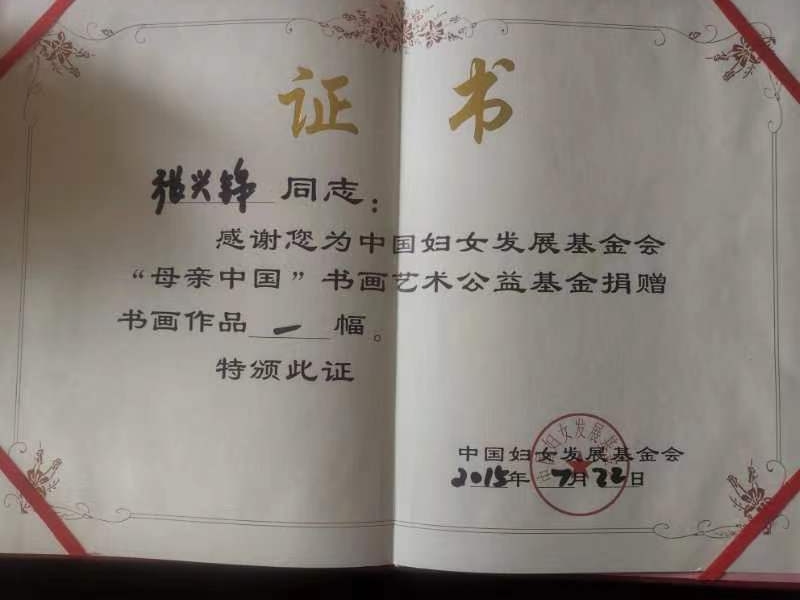 证书
张兴锦 同志：
感谢您为中国妇女发展基金会
“母亲中国”书画艺术公益基金捐赠
书画作品 一 幅。
特颁此证
中国妇女发展基金会
2015年 7月 22日